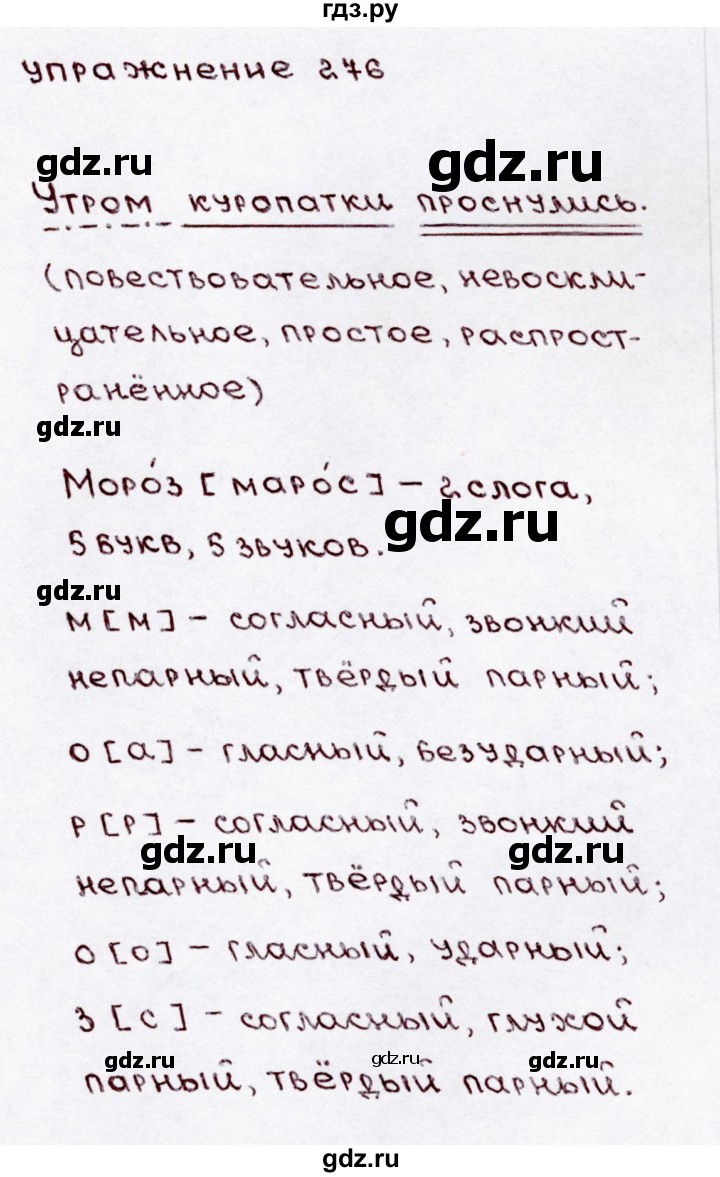 гдз.ру
упражнение 276
gdz.ru
gdz.ru
Утром куропатки проснулись.
(повествовательное, невоскли-
цательное, простое, распрост-
ранённое)
gdz.ru
Моро́з [маро́с] - 2 слога,
gdz.ru
5 букв, 5 звуков.
gdz.ru
м [м] - согласный, звонкий
непарный, твёрдый парный;
о [а] - гласный, безударный;
р [р] - согласный, звонкий
gdz.ru
gdz.ru
непарный, твёрдый парный;
о [о] - гласный, ударный;
з [с] - согласный, глухой
gdz.ru
gdz.ru
gdz.ru
парный, твёрдый парный.
gdz.ru